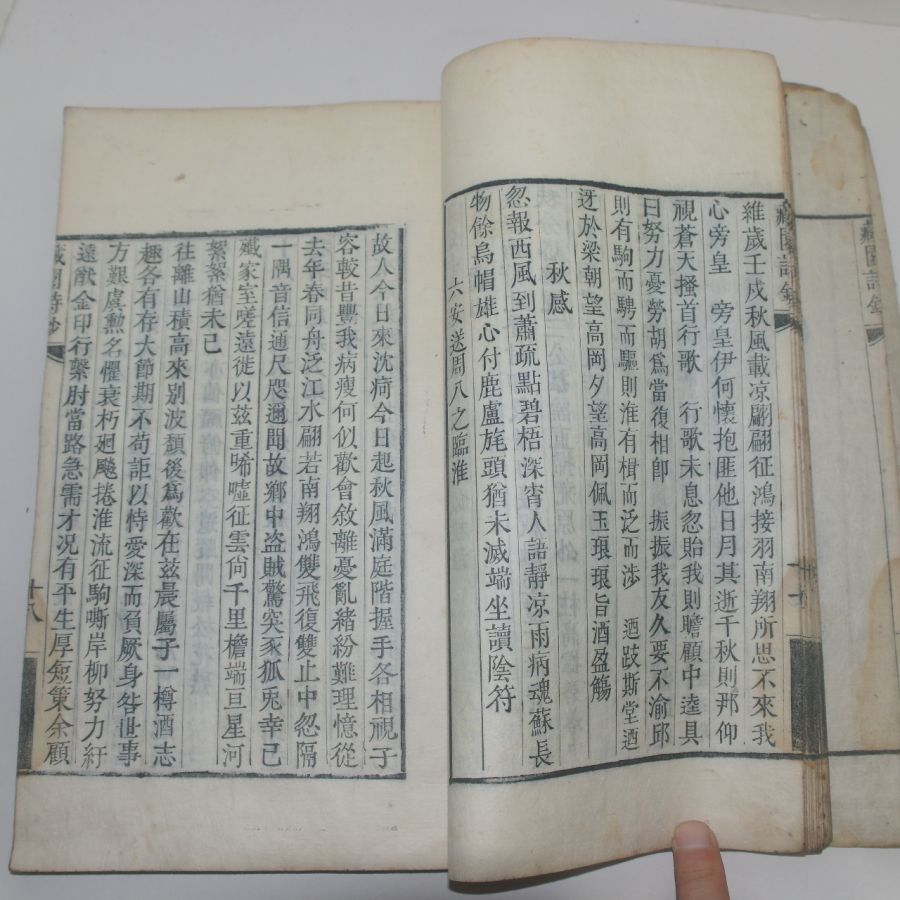 藏園詩鈔
維歲壬戌秋風載凉翩翩征鴻接羽南翔所思不來我
心旁皇　旁皇伊何懷抱匪他日月其逝千秋則那仰
視蒼天搔首行歌　行歌未息忽貽我則瞻顧中逵具
曰努力憂勞胡爲當復相卽　振振我友久要不渝邱
則有駒而騁而驅則淮有楫而泛而涉　迺跂斯堂迺
迓於梁朝望高岡夕望高岡佩玉琅琅旨酒盈觴
秋感
忽報西風到蕭疏點碧梧深宵人語靜凉雨病魂蘇長
物餘烏帽雄心付鹿盧旄頭猶未滅端坐讀陰符
六安送周八之臨淮
故人今日來沈痾今日起秋風滿庭階握手各相視子
容較昔豐我病瘦何似歡會敘離憂亂緒紛難理憶從
去年春同舟泛江水翩若南翔鴻雙飛復雙止中忽隔
一隅音信通尺咫邇聞故鄉中盜賊驚突豕狐兎幸已
殲家室嗟遠徙以兹重唏噓征雲尙千里檐端亘星河
絮絮猶未已
往離山積高來別波頹後爲歡在兹晨屬子一樽酒志
趣各有存大節期不苟詎以恃愛深而負厥身咎世事
方艱虞勲名懼衰朽廻飇捲淮流征駒嘶岸柳努力紆
遠猷金印行繫肘當路急需才况有平生厚短策余顧
藏園詩鈔
十八